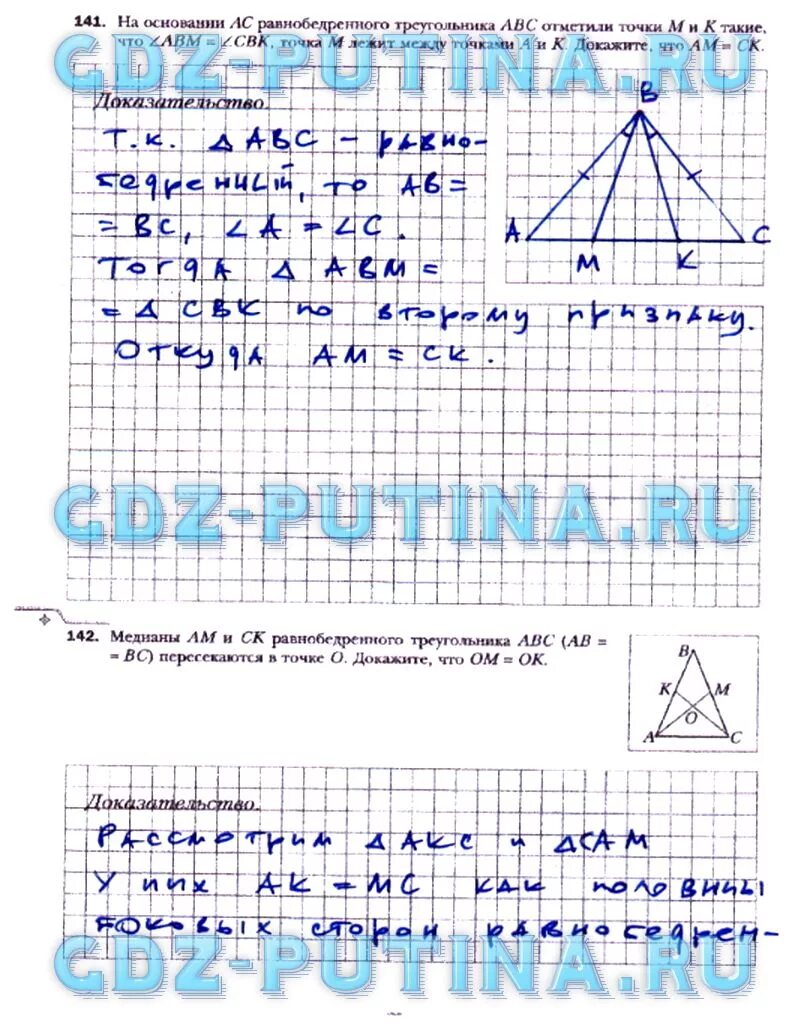 141. На основании AC равнобедренного треугольника ABC отметили точки M и K такие,
что ∠ABM = ∠CBK, точка M лежит между точками A и K. Докажите, что AM = CK.
GDZ-PUTINA.RU
Доказательство.
Т.к. △ ABC – равно-
бедренный, то AB =
= BC, ∠A = ∠C.
Тогда △ ABM =
= △ CBK по второму признаку.
Откуда AM = CK.
B
A
M
K
C
GDZ-PUTINA.RU
142. Медианы AM и CK равнобедренного треугольника ABC (AB =
= BC) пересекаются в точке O. Докажите, что OM = OK.
B
K
M
O
A
C
Доказательство.
Рассмотрим △ AKC и △CAM
У них AK = MC как половины
боковых сторон равнобедрен-
GDZ-PUTINA.RU